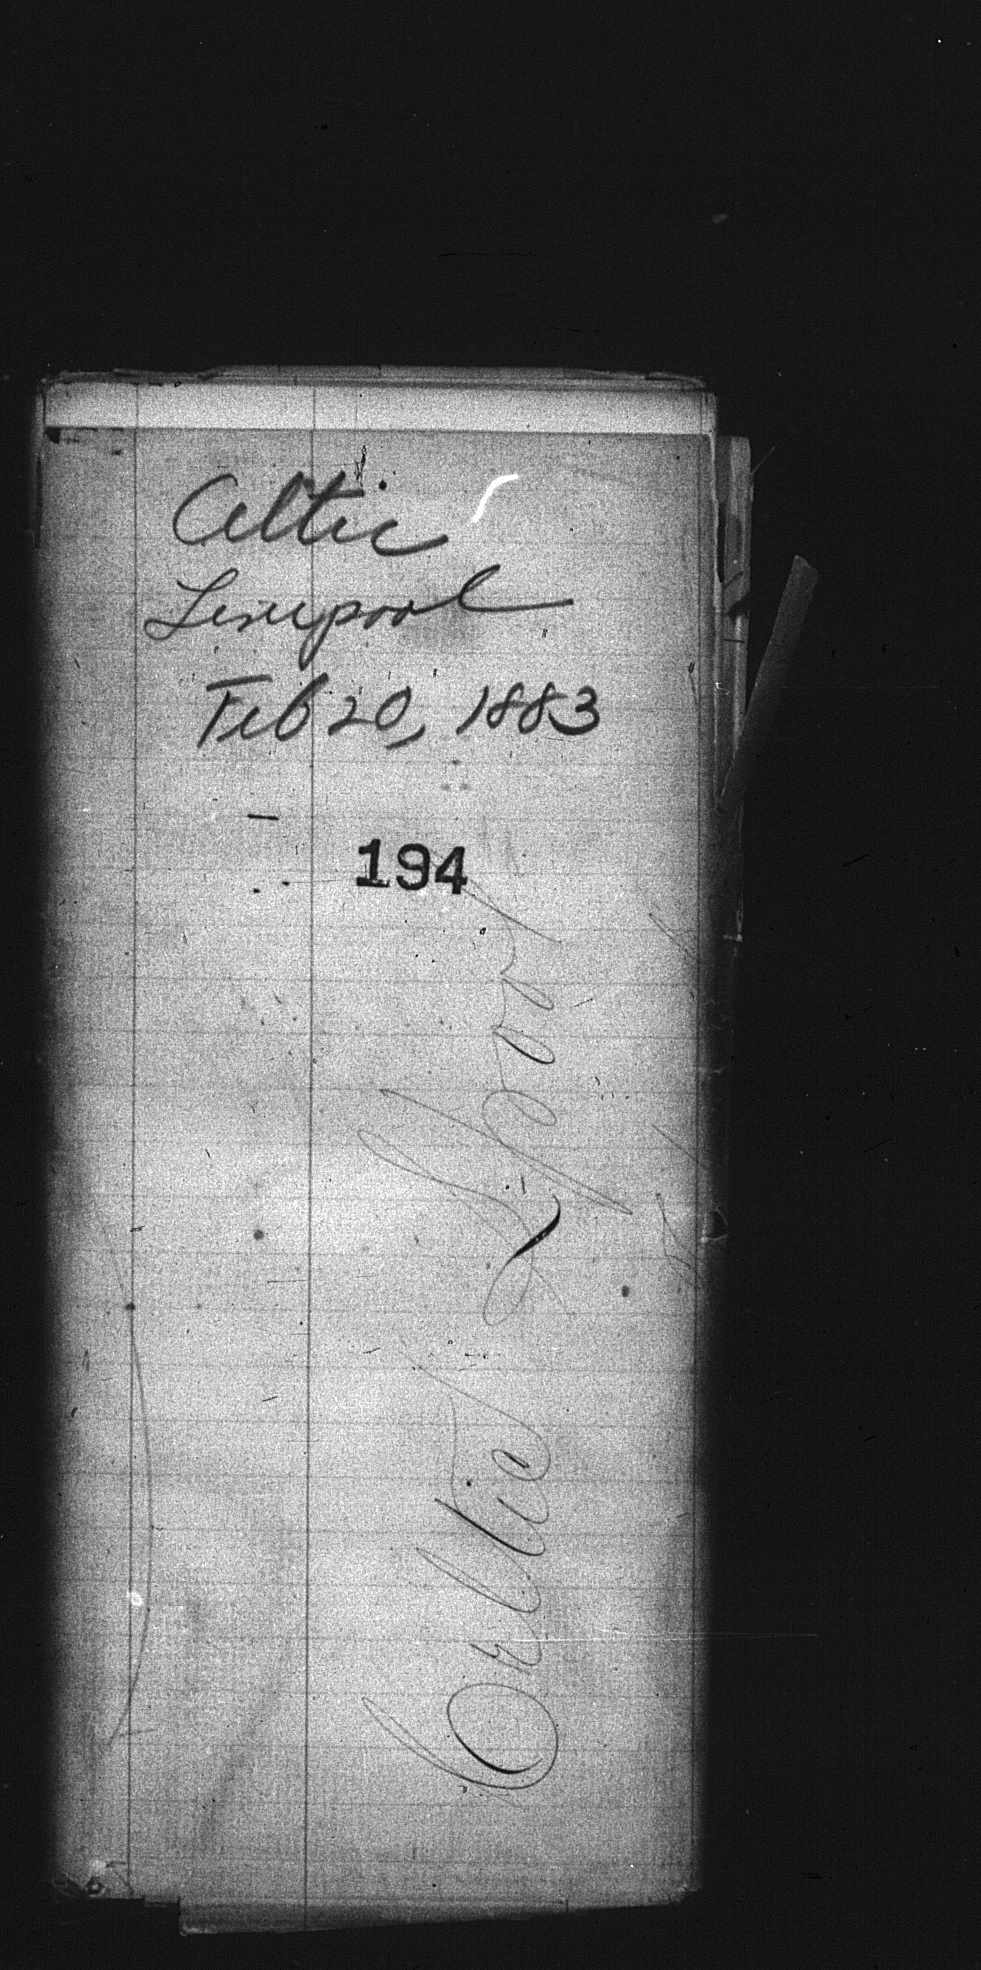 Celtic
Liverpool
Feb 20, 1883
194
Celtic L'pool